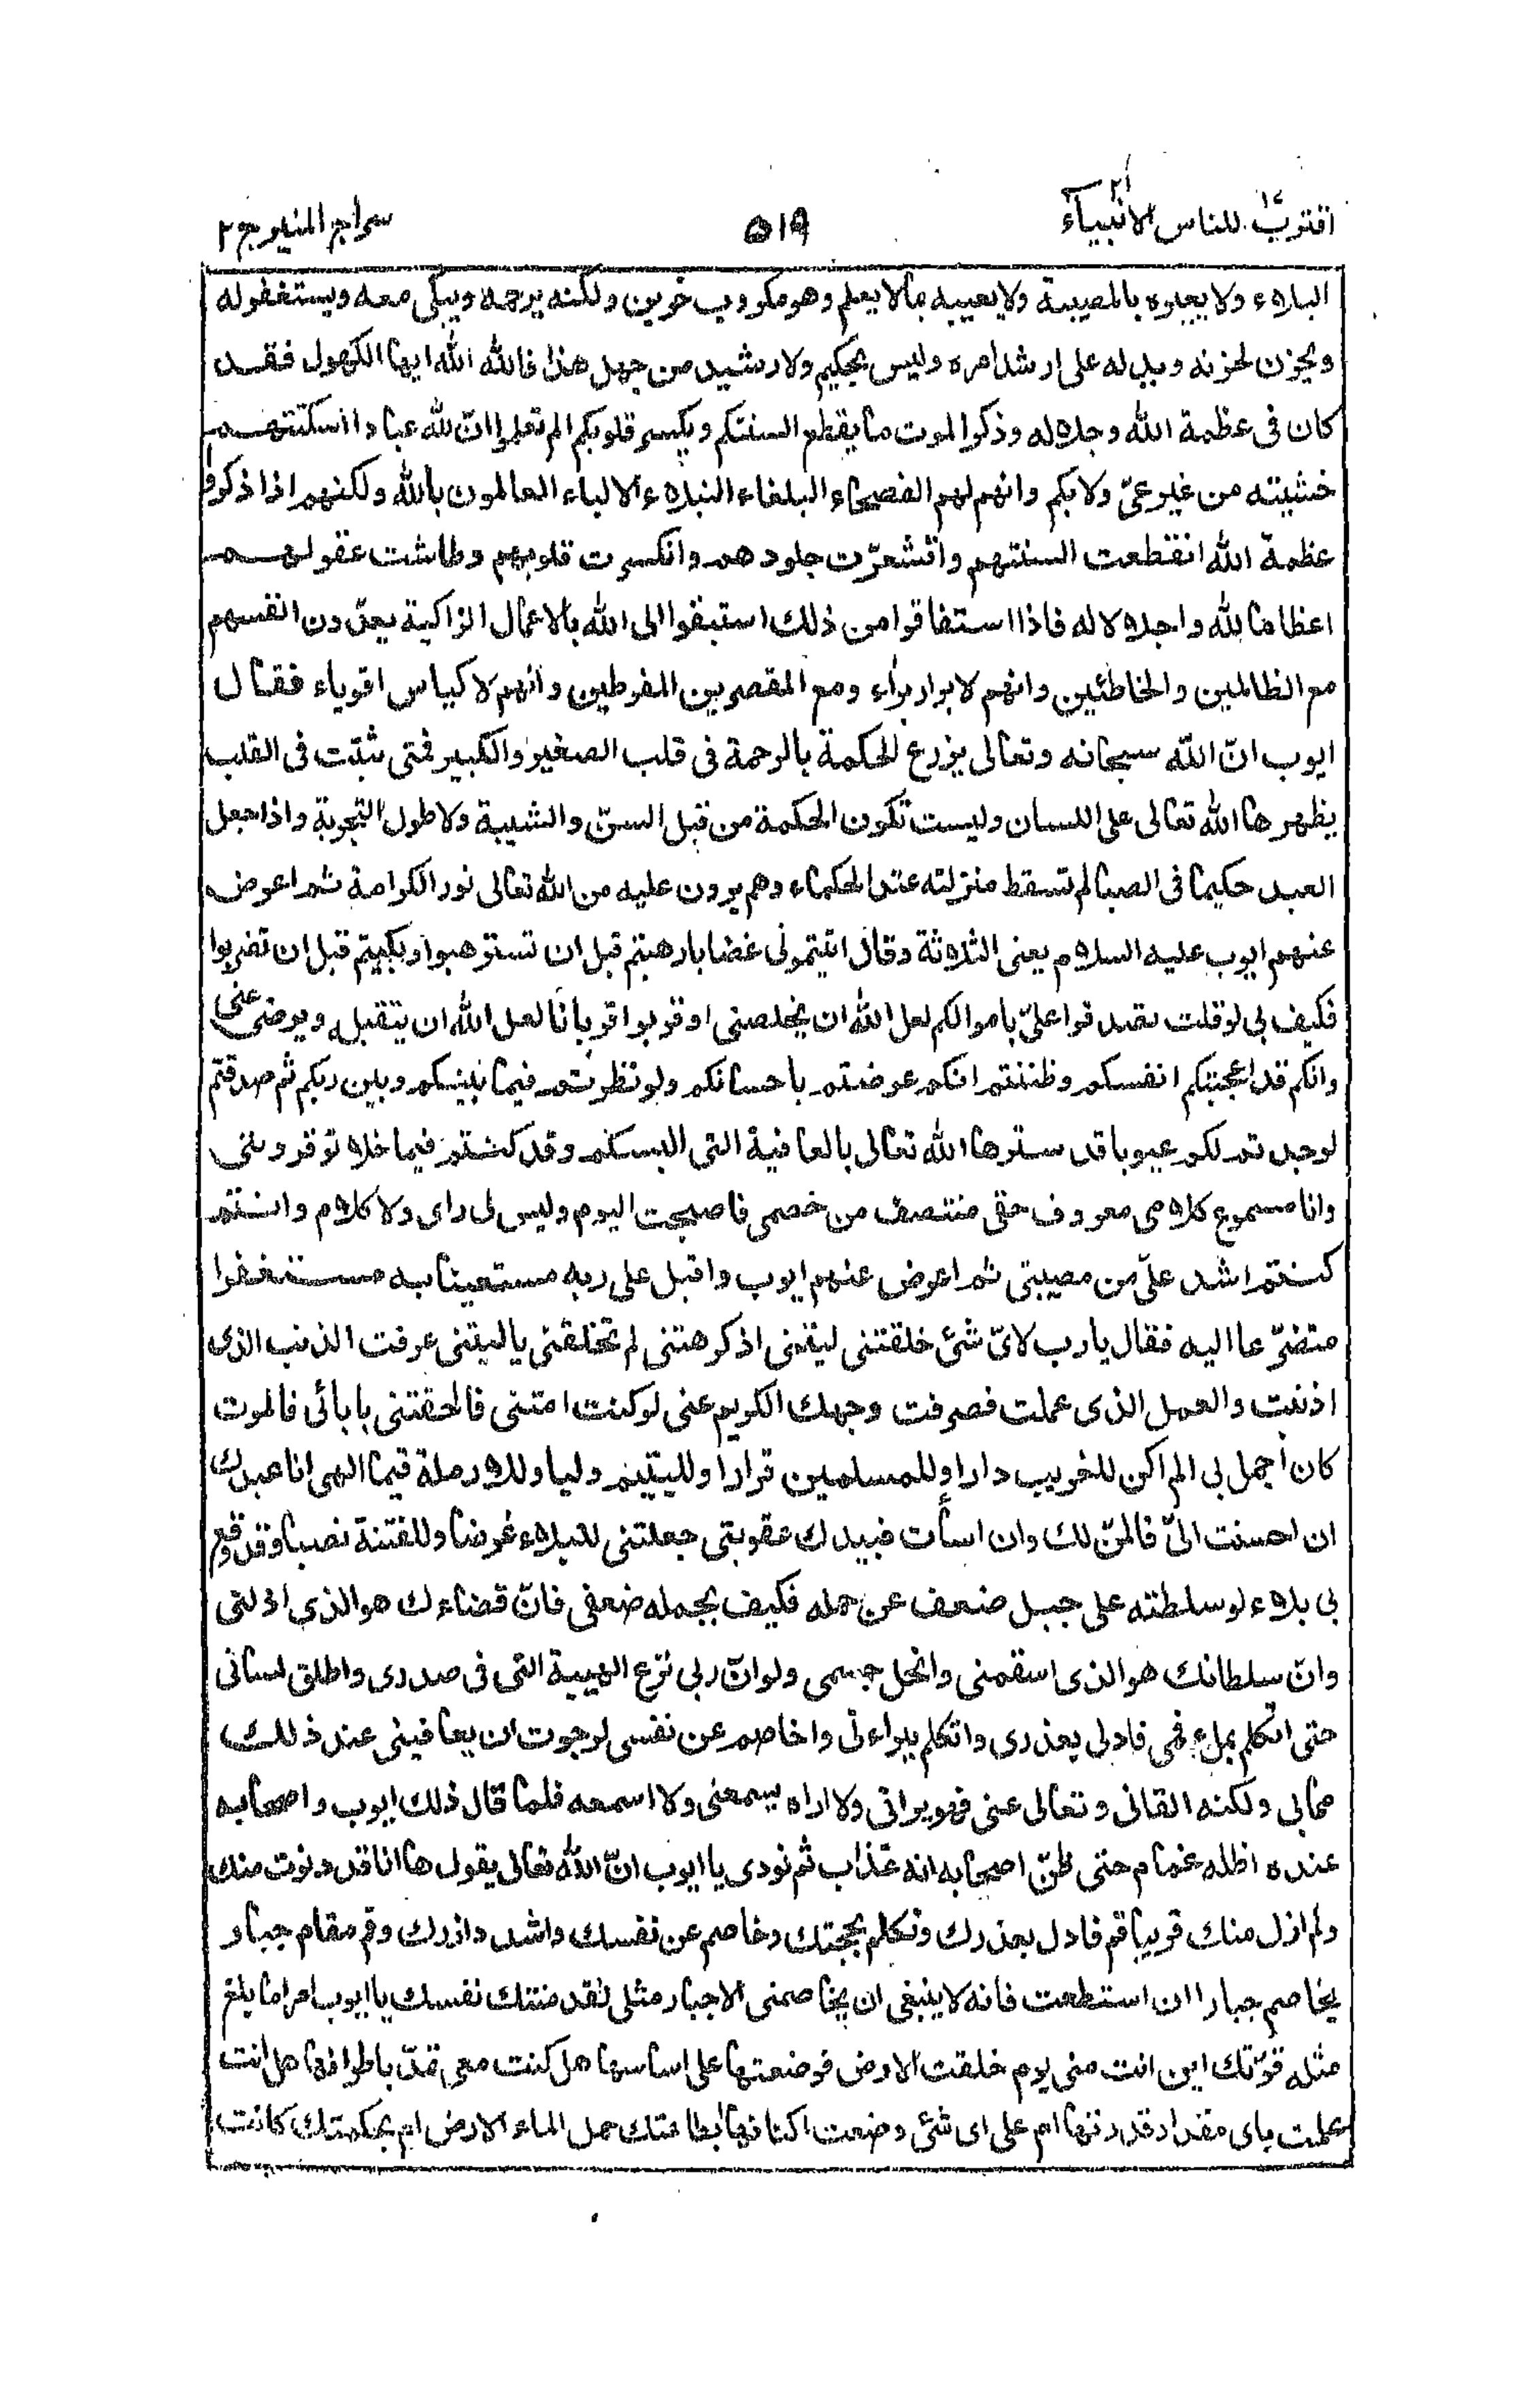 اقترب ١٧ للناس الانبيآء ٢١
٥١٩
سراج المنير ج ٢
البلاء ولا يعيره بالمصيبة ولا يعيبه بما لا يعلم وهو مكروب حزين ولكنه يرحمه ويبكى معه ويستغفر له
ويحزن لحزنه ويدله على ارشد امره وليس بحكيم ولا رشيد من جهل هذا فالله الله ايها الكهول فقد
كان فى عظمة الله وجلاله وذكر الموت ما يقطع السنتكم ويكسر قلوبكم الم تعلموا انّ لله عبادا اسكتتهم
خشيته من غير عىّ ولا بكم وانهم لهم الفصحاء البلغاء النبلاء الالباء العالمون بالله ولكنهم اذا ذكروا
عظمة الله انقطعت السنتهم واقشعرّت جلودهم وانكسرت قلوبهم وطاشت عقولهم
اعظاما لله واجلالا له فاذا استفاقوا من ذلك استبقوا الى الله بالاعمال الزاكية يعدّون انفسهم
مع الظالمين والخاطئين وانهم لابرار برآء ومع المقصرين المفرطين وانهم لاكياس اقوياء فقال
ايوب انّ الله سبحانه وتعالى يزرع الحكمة بالرحمة فى قلب الصغير والكبير فمتى ثبتت فى القلب
يظهرها الله تعالى على اللسان وليست تكون الحكمة من قبل السنّ والشيبة ولا طول التجربة واذا جعل
العبد حكيما فى الصبا لم تسقط منزلته عند الحكماء وهم يرون عليه من الله تعالى نور الكرامة ثم اعرض
عنهم ايوب عليه السلام يعنى الثلاثة وقال اتيتمونى غضابا رهبتم قبل ان تسترهبوا وبكيتم قبل ان تضربوا
فكيف بى لو قلت تصدقوا علىّ باموالكم لعل الله ان يخلصنى او قربوا قربانا لعل الله ان يتقبل ويرضى عنى
وانكم قد اعجبتكم انفسكم وظننتم انكم عوفيتم باحسانكم ولو نظرتم فيما بينكم وبين ربكم ثم صدقتم
لوجدتم لكم عيوبا قد سترها الله تعالى بالعافية التى البسكم وقد كنتم فيما خلا توقروننى
وانا مسموع كلامى معروف حقى منتصف من خصمى فاصبحت اليوم وليس لى راى ولا كلام وانتم
كنتم اشد علىّ من مصيبتى ثم اعرض عنهم ايوب واقبل على ربه مستعينا به مستغفرا
متضرّعا اليه فقال يا رب لاىّ شئ خلقتنى ليتنى اذ كرهتنى لم تخلقنى يا ليتنى عرفت الذنب الذى
اذنبت والعمل الذى عملت فصرفت وجهك الكريم عنى لو كنت امتنى فالحقتنى بابائى فالموت
كان اجمل بى الم اكن للغريب دارا وللمسلمين قرارا ولليتيم وليا وللارملة قيما الهى انا عبدك
ان احسنت الىّ فالمنّ لك وان اسأت فبيدك عقوبتى جعلتنى للبلاء غرضا وللفتنة نصبا وقد وقع
بى بلاء لو سلطته على جبل ضعف عن حمله فكيف يحمله ضعفى فانّ قضاءك هو الذى اذلنى
وانّ سلطانك هو الذى اسقمنى وانحل جسمى ولو انّ ربى نزع الهيبة التى فى صدرى واطلق لسانى
حتى اتكلم بملء فمى فادلى بعذرى واتكلم ببراءتى واخاصم عن نفسى لرجوت ان يعافينى عند ذلك
مما بى ولكنه القانى وتعالى عنى فهو يرانى ولا اراه يسمعنى ولا اسمعه فلما قال ذلك ايوب واصحابه
عنده اظله غمام حتى ظنّ اصحابه انه عذاب ثم نودى يا ايوب انّ الله تعالى يقول ها انا قد دنوت منك
ولم ازل منك قريبا قم فادل بعذرك وتكلم بحجتك وخاصم عن نفسك واشدد ازرك وقم مقام جبار
يخاصم جبارا ان استطعت فانه لا ينبغى ان يخاصمنى الا جبار مثلى لقد منتك نفسك يا ايوب امرا ما يبلغ
مثله قوّتك اين انت منى يوم خلقت الارض فوضعتها على اساسها هل كنت معى تمدّ باطرافها هل انت
علمت باى مقدار قدرتها ام على اى شئ وضعت اكنافها ابطاعتك حمل الماء الارض ام بحكمتك كانت